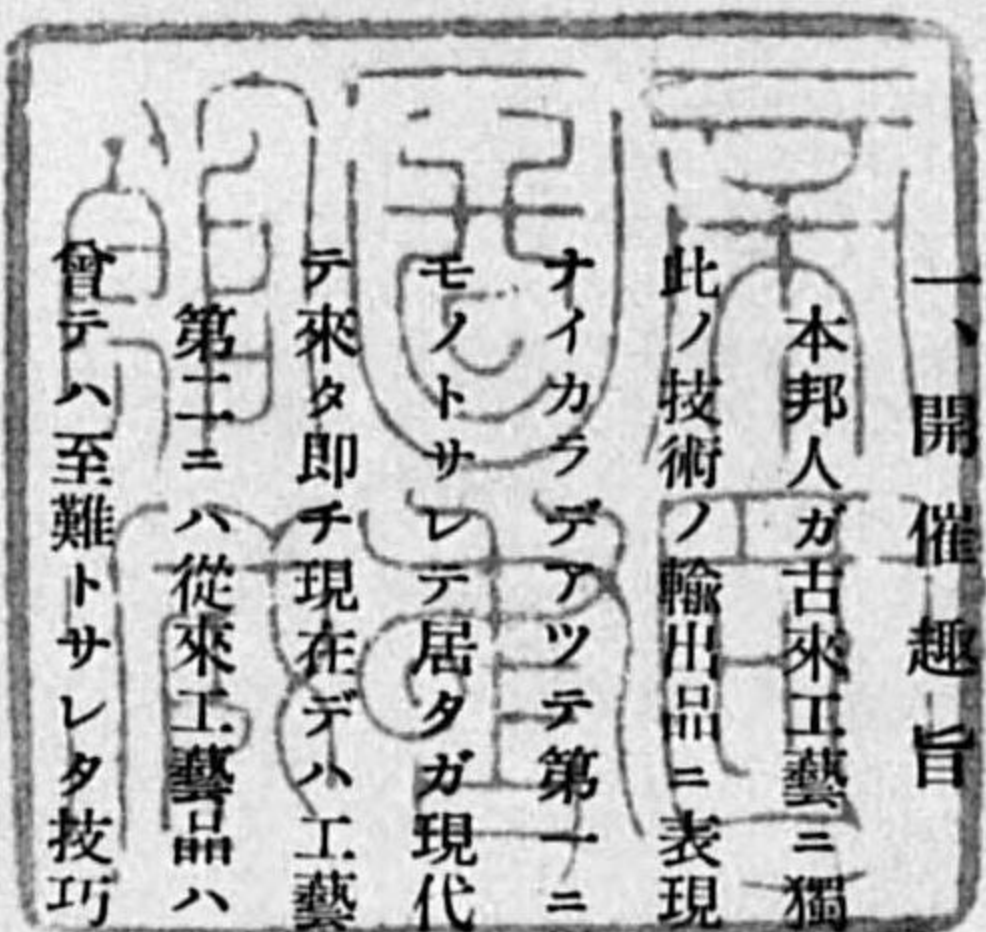 一、開催趣旨
本邦人ガ古來工藝ニ獨
此ノ技術ノ輸出品ニ表現
ナイカラデアツテ第一ニ
モノトサレテ居タガ現代
テ來タ即チ現在デハ工藝
第二ニハ從來工藝品ハ
曾テハ至難トサレタ技巧